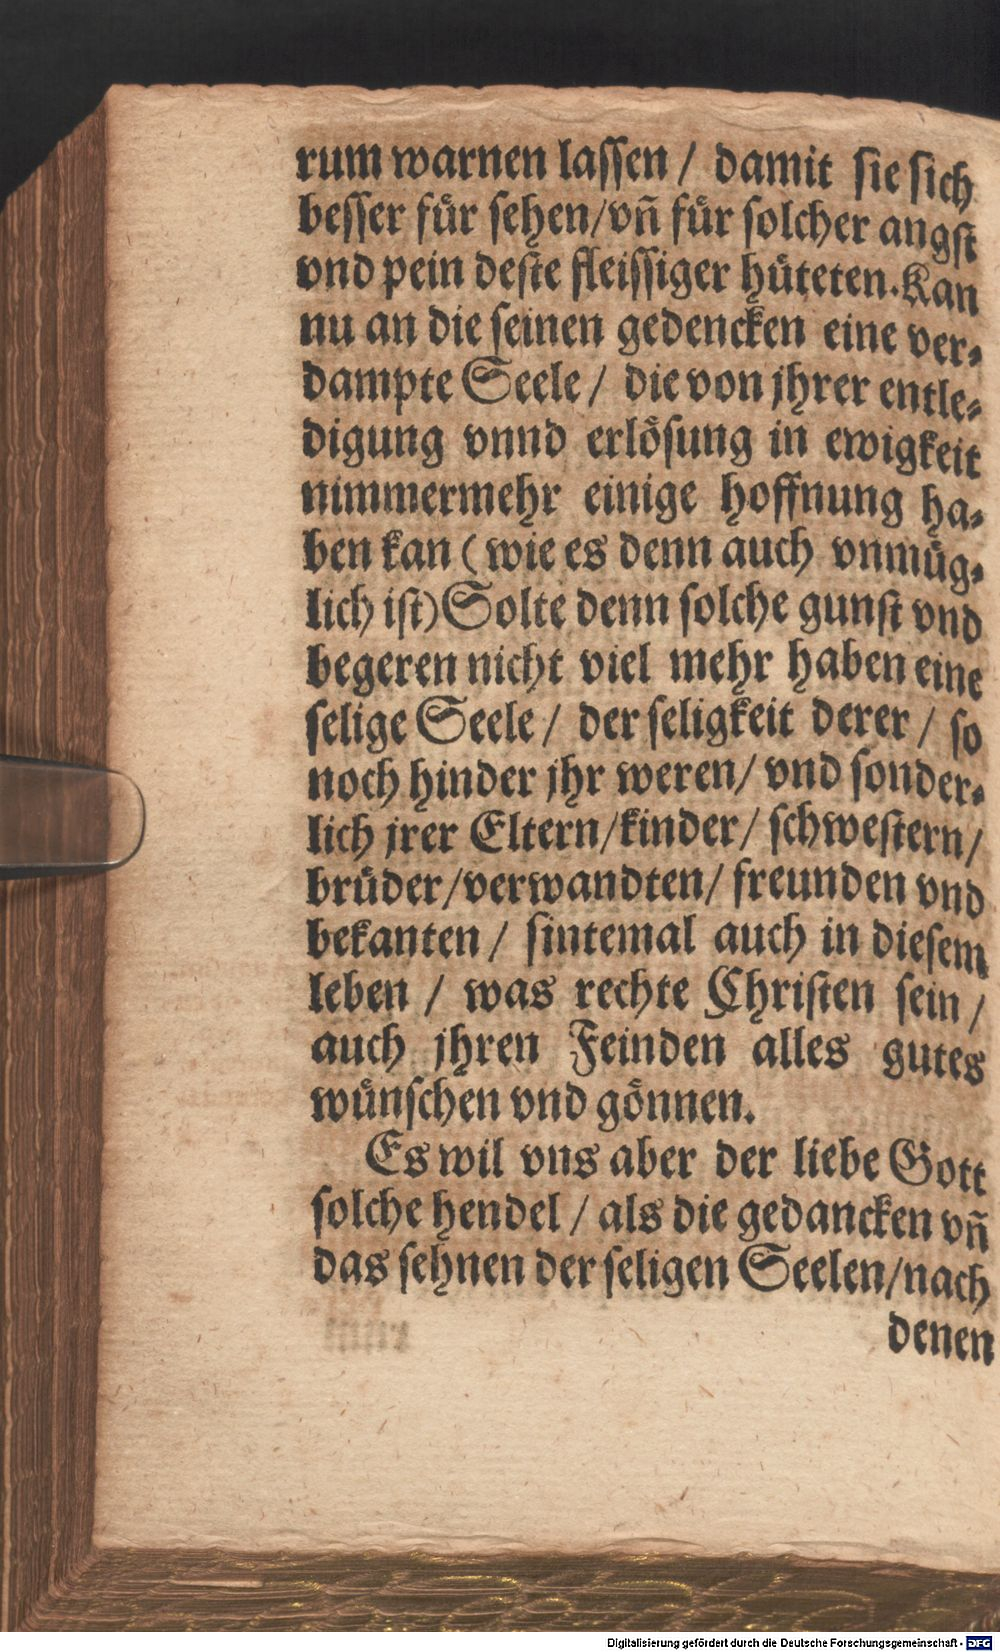 rum warnen lassen / damit sie sich
besser fuͤr sehen/vn̄ fuͤr solcher angst
vnd pein deste fleissiger huͤteten. Kan
nu an die seinen gedencken eine ver⸗
dampte Seele / die von jhrer entle⸗
digung vnnd erloͤsung in ewigkeit
nimmermehr einige hoffnung ha⸗
ben kan (wie es denn auch vnmuͤg⸗
lich ist) Solte denn solche gunst vnd
begeren nicht viel mehr haben eine
selige Seele / der seligkeit derer / so
noch hinder jhr weren/ vnd sonder⸗
lich jrer Eltern/kinder/ schwestern/
bruͤder/verwandten/ freunden vnd
bekanten / sintemal auch in diesem
leben / was rechte Christen sein /
auch jhren Feinden alles gutes
wuͤnschen vnd goͤnnen.
Es wil vns aber der liebe Gott
solche hendel / als die gedancken vn̄
das sehnen der seligen Seelen/nach
denen
Digitalisierung gefördert durch die Deutsche Forschungsgemeinschaft - DFG